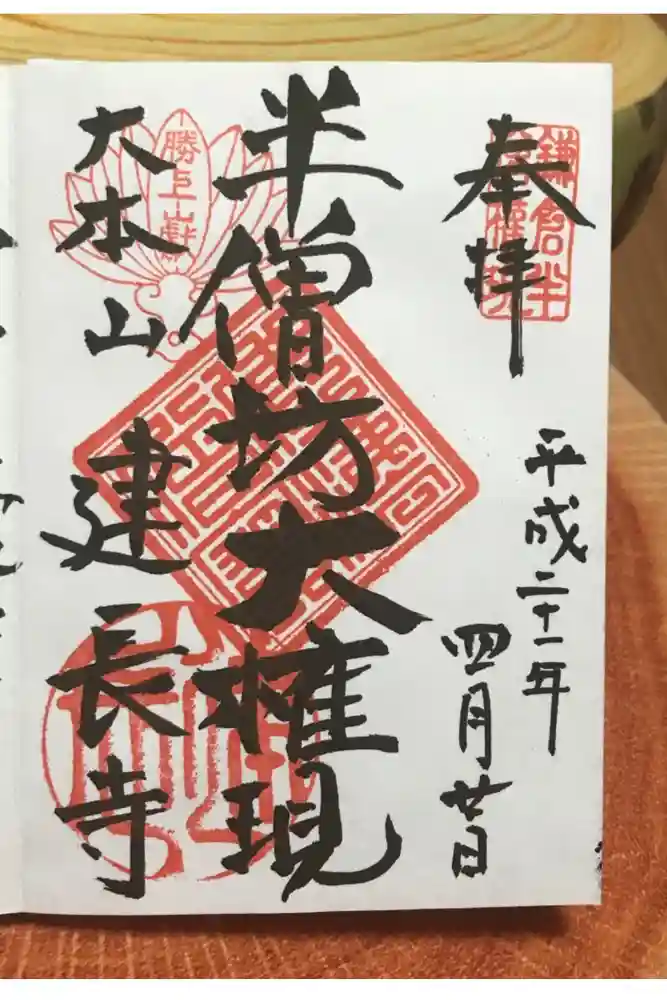 奉拝
鎌倉半
僧権現
平成二十一年
四月廿日
半僧坊大権現
勝上山
大本山
建長寺